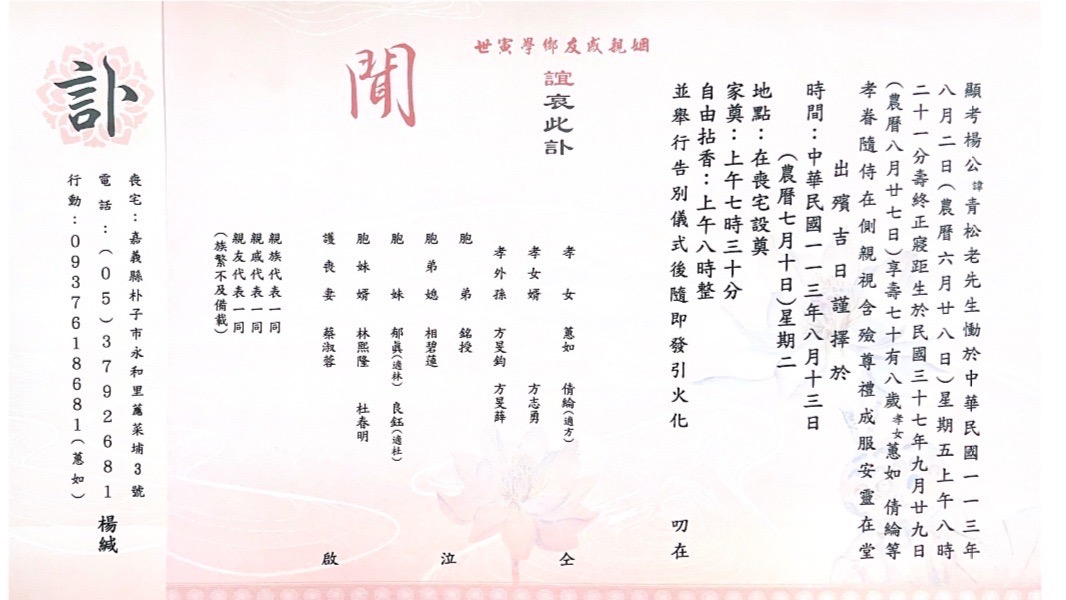 顯考楊公諱青松老先生慟於中華民國一一三年
八月二日(農曆六月廿八日)星期五上午八時
二十一分壽終正寢距生於民國三十七年九月廿九日
(農曆八月廿七日)享壽七十有八歲孝女蕙如 倩綸等
孝眷隨侍在側親視含殮尊禮成服安靈在堂
出殯吉日謹擇於
時間：中華民國一一三年八月十三日
(農曆七月十日)星期二
地點：在喪宅設奠
家奠：上午七時三十分
自由拈香：上午八時整
並舉行告別儀式後隨即發引火化 叨在
世寅學鄉友戚親姻
誼哀此訃
聞
孝女 蕙如 倩綸(適方) 仝
孝女婿 方志勇
孝外孫 方旻鈞 方旻薛
胞弟 銘授
胞弟媳 相碧蓮 泣
胞妹 郁真(適林) 良鈺(適杜)
胞妹婿 林熙隆 杜春明
護喪妻 蔡淑蓉 啟
親族代表一同
親戚代表一同
親友代表一同
(族繁不及備載)
訃
喪宅：嘉義縣朴子市永和里蔦菜埔3號
電話：(05)3792681 楊緘
行動：0937618681(蕙如)